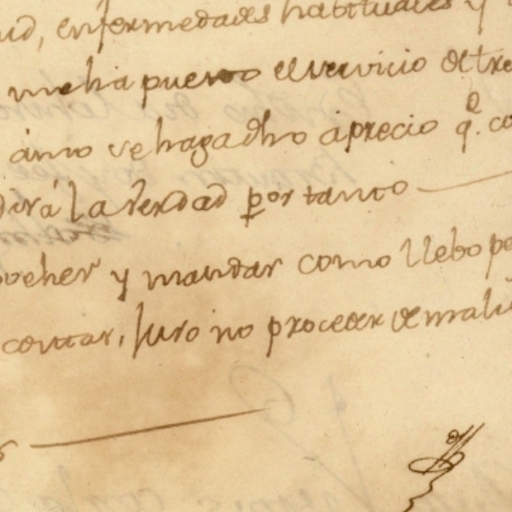 ud, enfermedades habituales y
me ha puesto el servicio de tre
ámo se haga dho aprecio q.e co
dirá la verdad por tanto
poeher y mandar como llebo pe
contar, Juro no proceder de mali